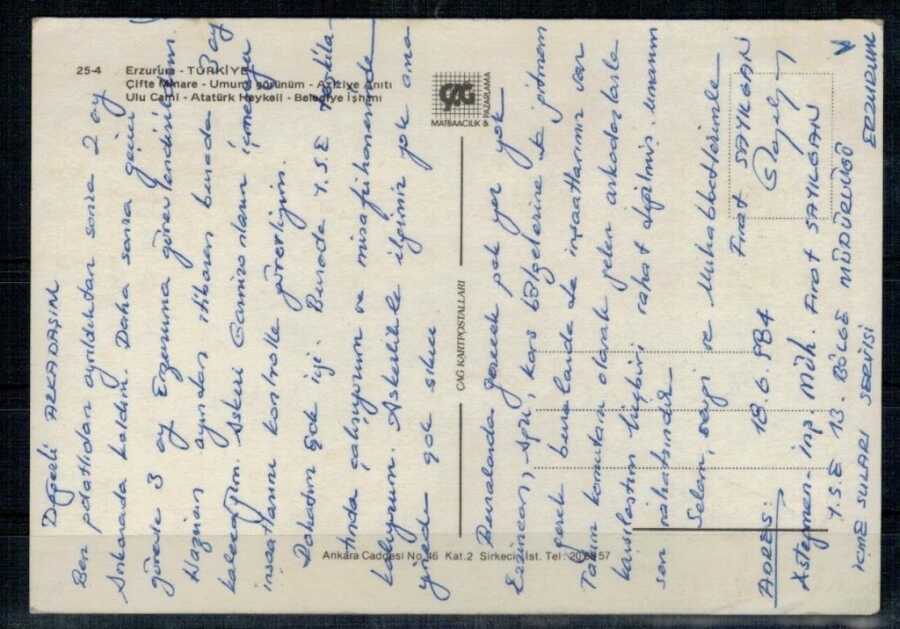 25-4 Erzurum - TÜRKİYE
Çifte Minare - Umumi görünüm - Aziziye Anıtı
Ulu Cami - Atatürk Heykeli - Belediye İşhanı
ÇAĞ
MATBAACILIK & PAZARLAMA
ÇAĞ KARTPOSTALLARI
Ankara Caddesi No. 46 Kat.2 Sirkeci-İst. Tel: 57
Değerli ARKADAŞIM
Ben polatlıdan ayrıldıktan sonra 2 ay
Ankarada kaldım. Daha sonra geçici
görevle 3 ay Erzuruma görevlendirildim.
Haziran ayından itibaren burada 3 ay
kalacağım. Askeri Garnizonların içmesuyu
inşaatlarını kontrolle görevliyim.
Rahatım çok iyi. Burada Y.S.E
tında çalışıyorum ve misafirhanesinde
kalıyorum. Askerlikle ilgimiz yok ama
yinede çok sıkıcı
Buralarda gezecek pek yer yok
Erzincan, Ağrı, Kars bölgelerine de gitmem
gerek buralarda da inşaatlarımız var
Takım komutanı olarak gelen arkadaşlarla
karşılaştım hiçbiri rahat değilmiş umarım
sen rahatsındır
Selam, saygı ve Muhabbetlerimle
Fırat SAYILGAN
18.6.984
ADRES:
Asteğmen - inş. Müh. Fırat SAYILGAN
Y.S.E 13. BÖLGE MÜDÜRLÜĞÜ
İÇME SULARI SERVİSİ ERZURUM